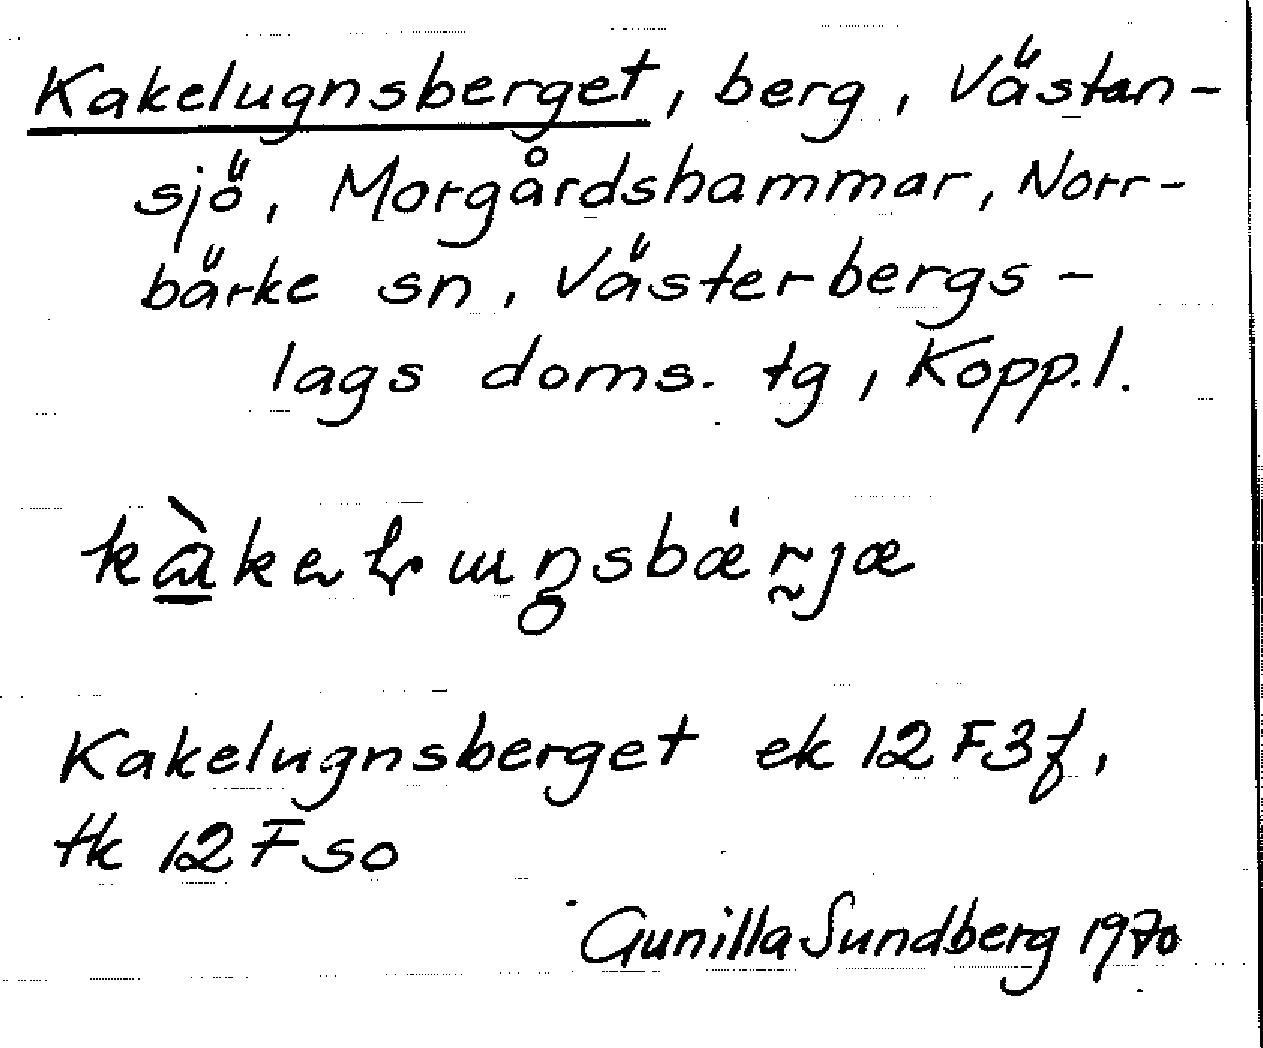 Kakelugnsberget, berg, Västan-
sjö, Morgårdshammar, Norr-
bärke sn, Västerbergs-
lags doms. tg, Kopp. l.
Kakelugnsberget ek 12F3f,
tk 12F SO
Gunilla Sundberg 1970